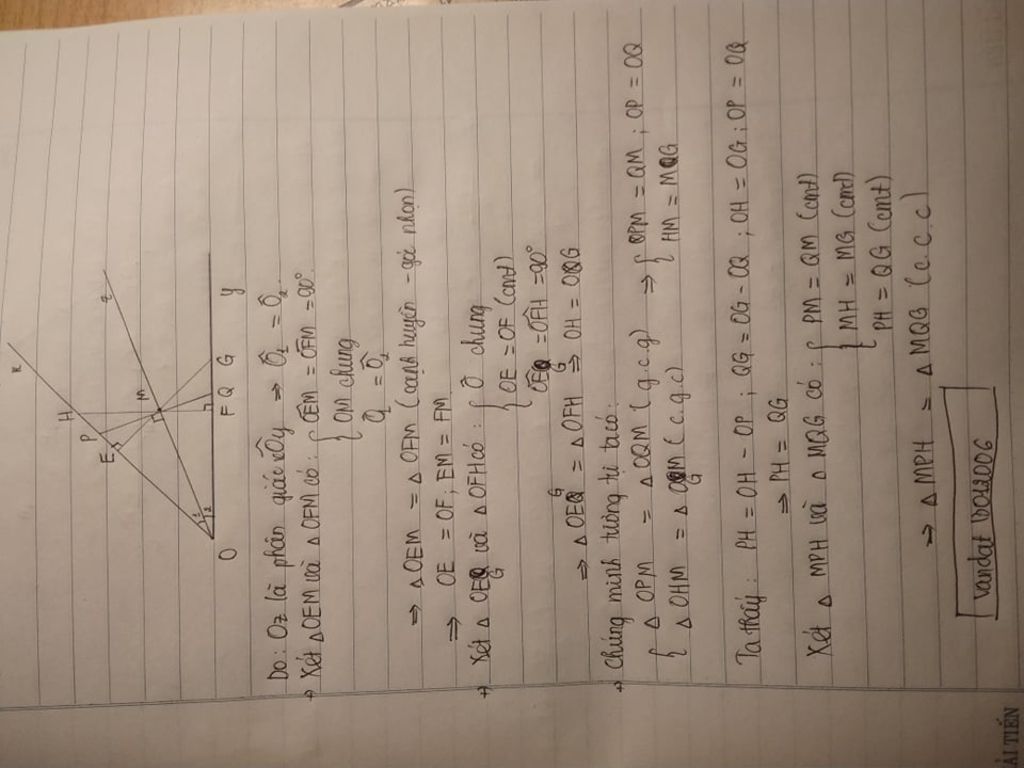 x
H
P
E
M
z
O
F Q G y
Do: Oz là phân giác xÔy ⇒ Ô₁ = Ô₂
→ Xét ΔOEM và ΔOFM có: { OÊM = OF̂M = 90°
OM chung
Ô₁ = Ô₂
⇒ ΔOEM = ΔOFM (cạnh huyền - góc nhọn)
⇒ OE = OF; EM = FM
→ Xét ΔOEG và ΔOFH có: { Ô chung
OE = OF (cmt)
OÊG = OF̂H = 90°
⇒ ΔOEG = ΔOFH ⇒ OH = OG
→ Chứng minh tương tự ta có:
{ ΔOPM = ΔOQM (g.c.g) ⇒ { PM = QM; OP = OQ
ΔOHM = ΔOGM (c.g.c) HM = MG
Ta thấy: PH = OH - OP; QG = OG - OQ; OH = OG; OP = OQ
⇒ PH = QG
Xét ΔMPH và ΔMQG có: { PM = QM (cmt)
MH = MG (cmt)
PH = QG (cmt)
⇒ ΔMPH = ΔMQG (c.c.c)
ẢI TIẾN